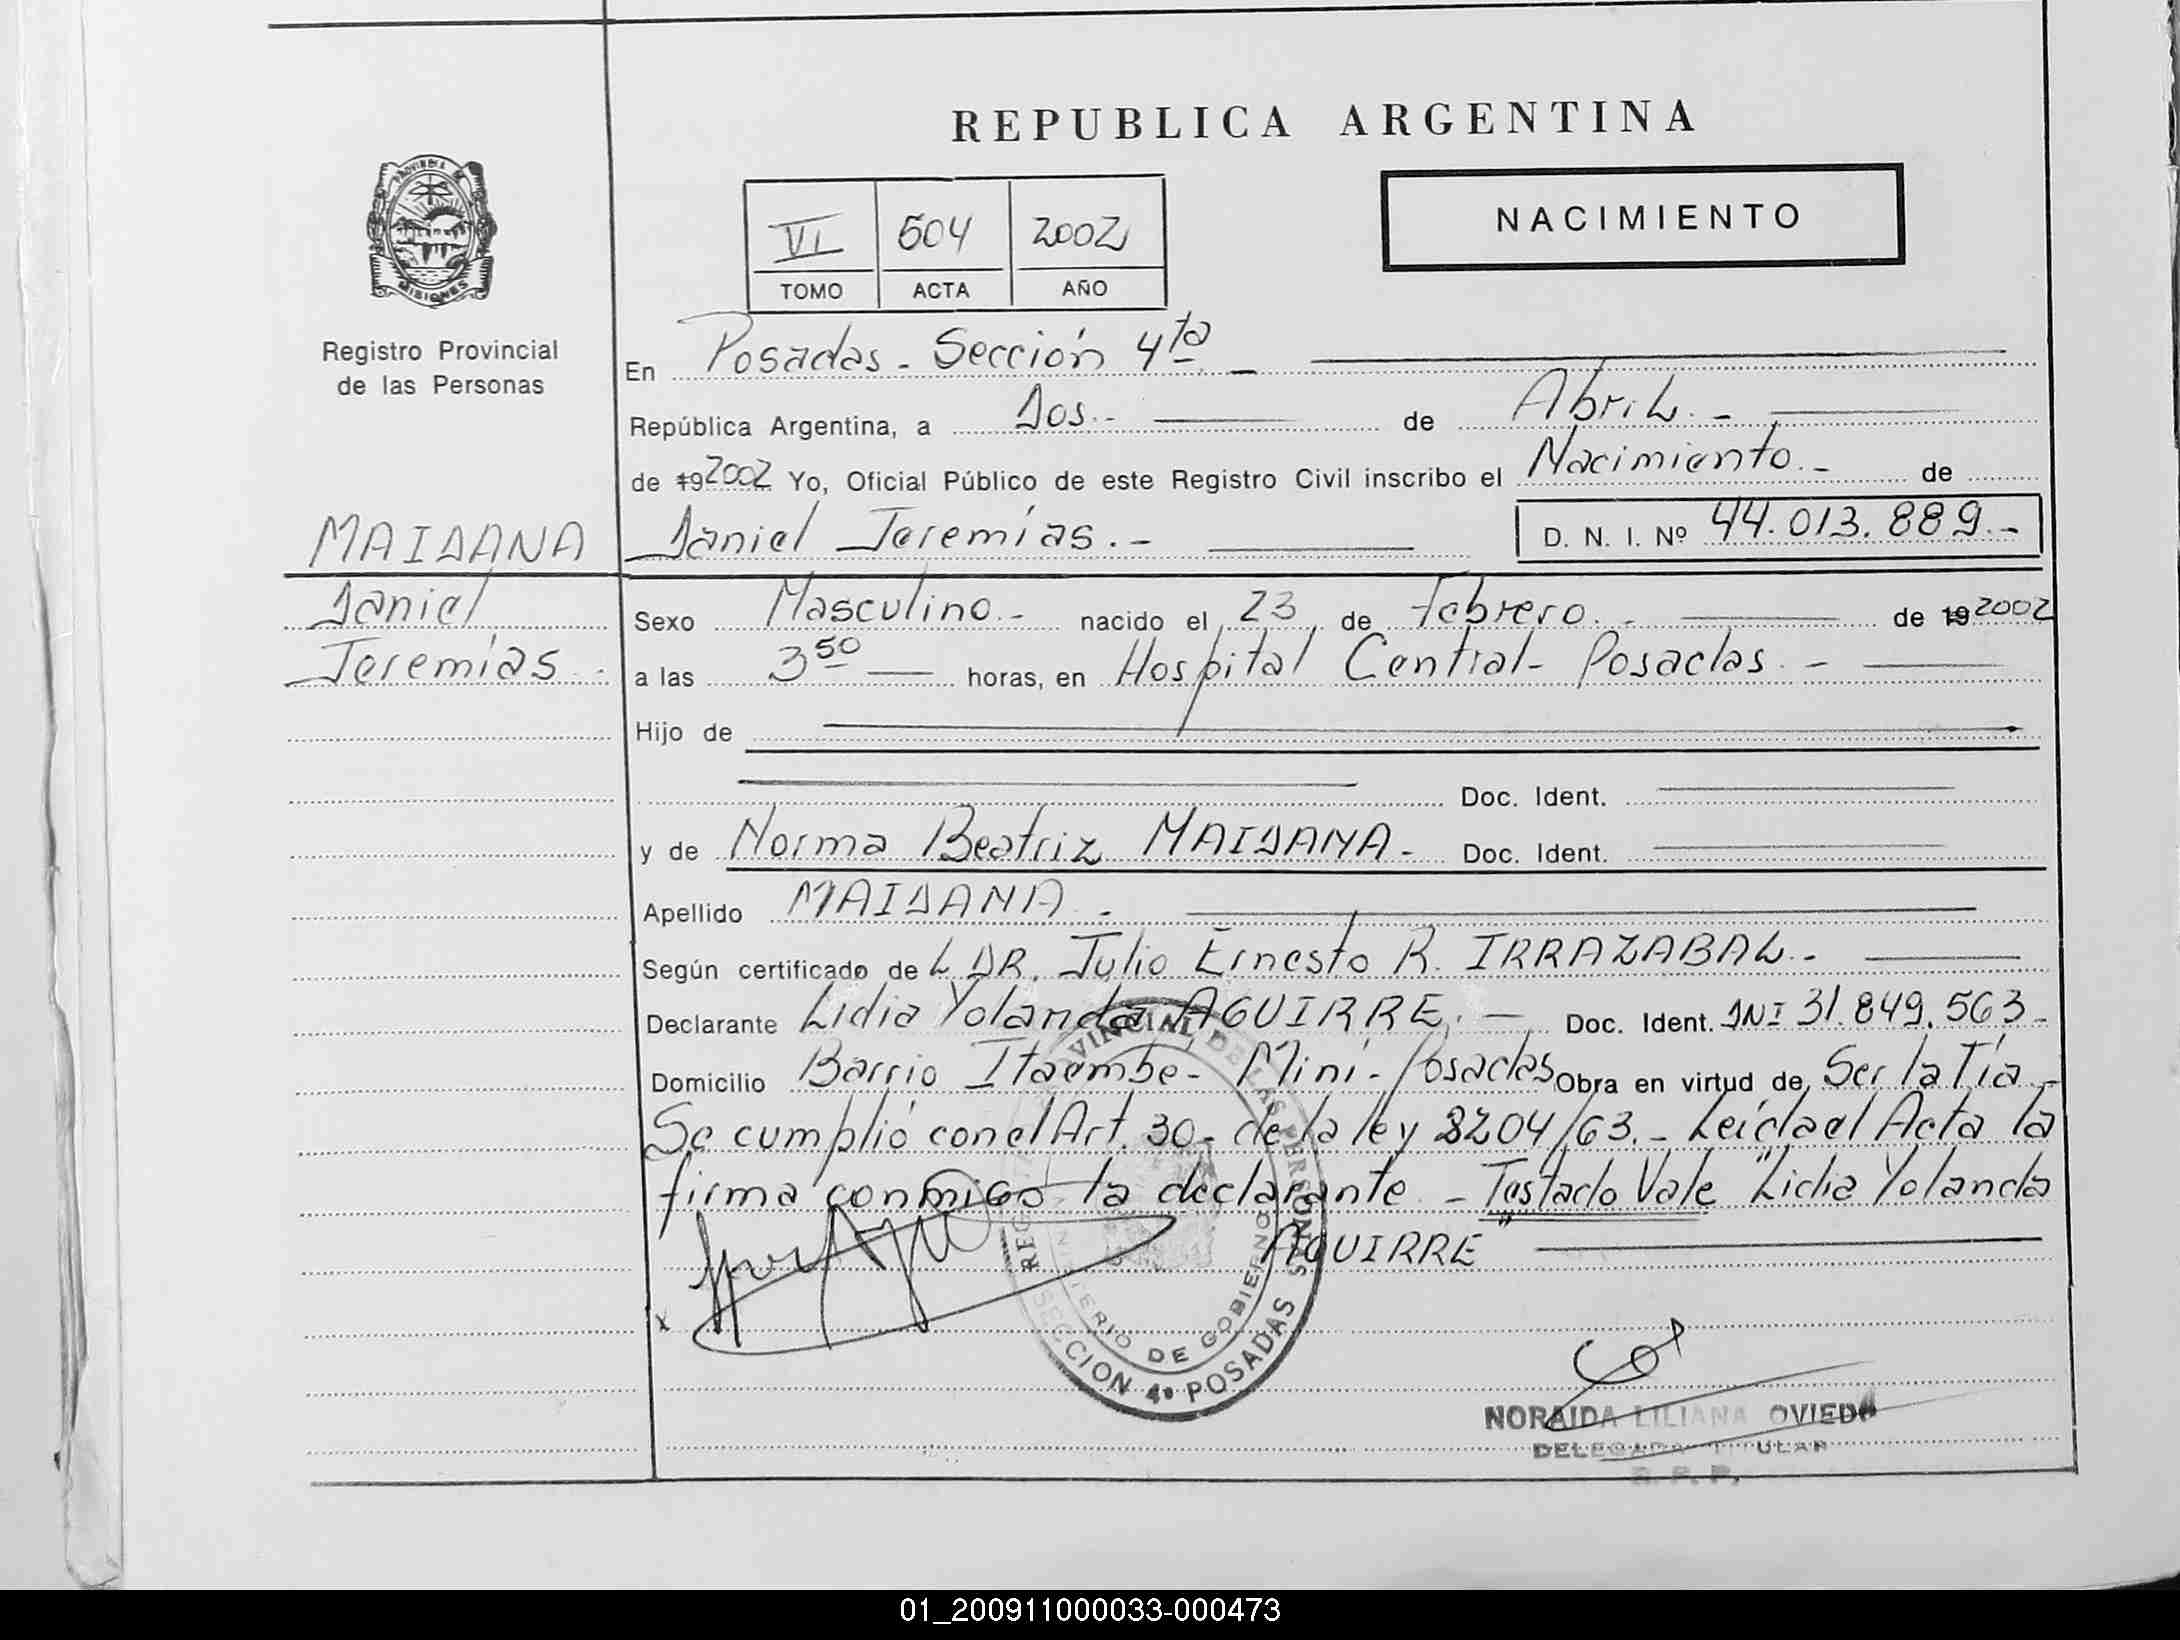 REPUBLICA ARGENTINA
PROVINCIA DE
MISIONES
Registro Provincial
de las Personas
NACIMIENTO
VI 504 2002
TOMO ACTA AÑO
En Posadas - Sección 4ta -
República Argentina, a Dos.- de Abril.-
de 192002 Yo, Oficial Público de este Registro Civil inscribo el Nacimiento.- de
MAIDANA
Daniel Jeremías.- D. N. I. Nº 44.013.889.-
Daniel
Jeremías.
Sexo Masculino.- nacido el 23 de febrero.- de 192002
a las 3 50 horas, en Hospital Central - Posadas.-
Hijo de
Doc. Ident.
y de Norma Beatriz MAIDANA.- Doc. Ident.
Apellido MAIDANA.-
Según certificado de L DR. Julio Ernesto R. IRRAZABAL.-
Declarante Lidia Yolanda AGUIRRE.- Doc. Ident. DNI 31.849.563-
Domicilio Barrio Itaembé - Mini - Posadas Obra en virtud de Ser la Tía.-
Se cumplió con el Art. 30 - de la ley 8204/63.- Leída el Acta la
firma conmigo la declarante.- Testado Vale "Lidia Yolanda
AGUIRRE"
SECCION 4ª POSADAS
MINISTERIO DE GOBIERNO
NORAIDA LILIANA OVIEDO
DELEGADA TITULAR
R. P. P.
01_200911000033-000473